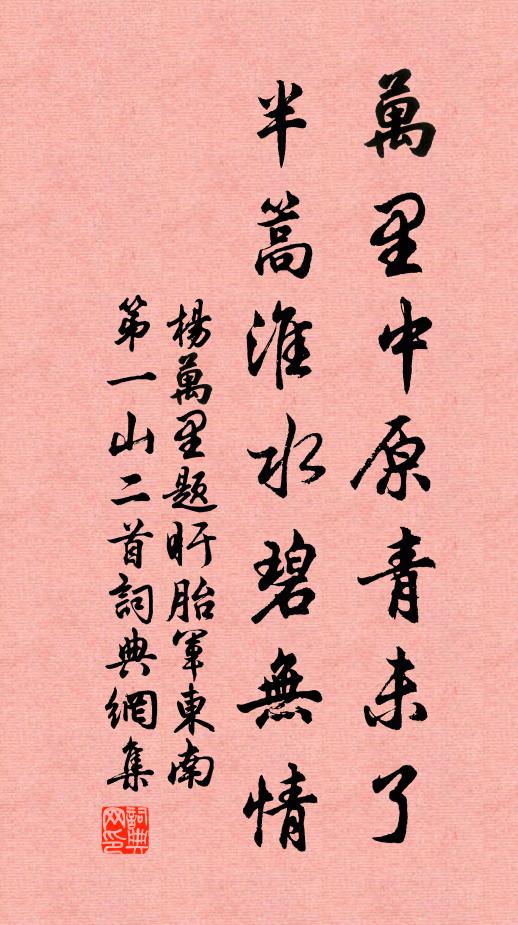 萬里中原青未了
半篙淮水碧無情
楊萬里題盱胎軍東南
第一山二首詞典網集
詞典网印